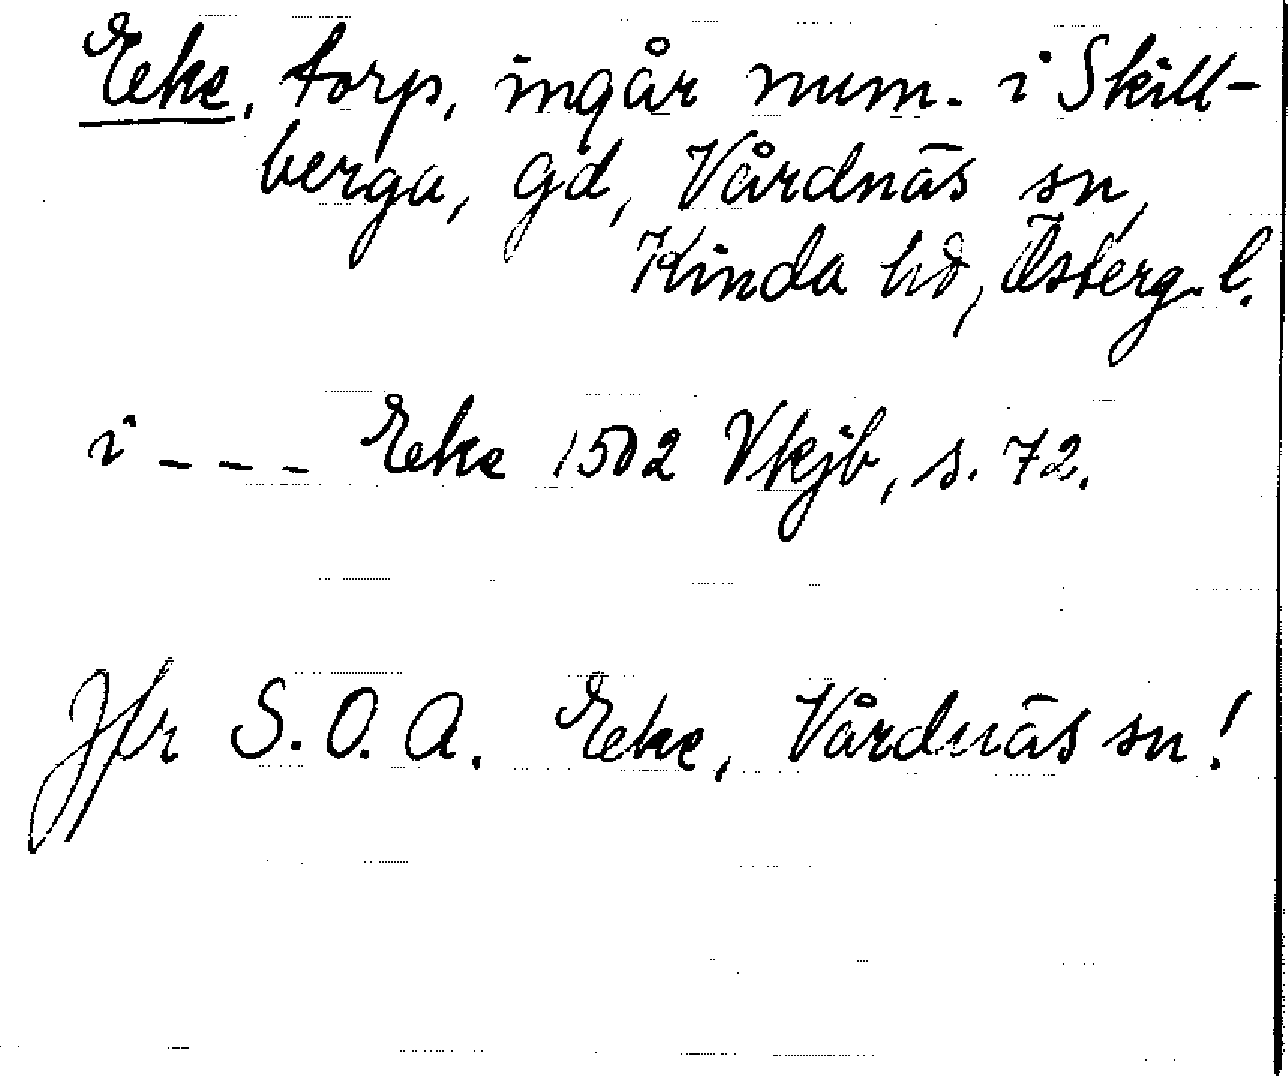 Eke, torp, ingår num. i Skill-
berga, gd, Vårdnäs sn,
Kinda hd, Österg. l.
i --- Eke 1502 Vkjb, s. 72.
Jfr S.O.A. Eke, Vårdnäs sn!